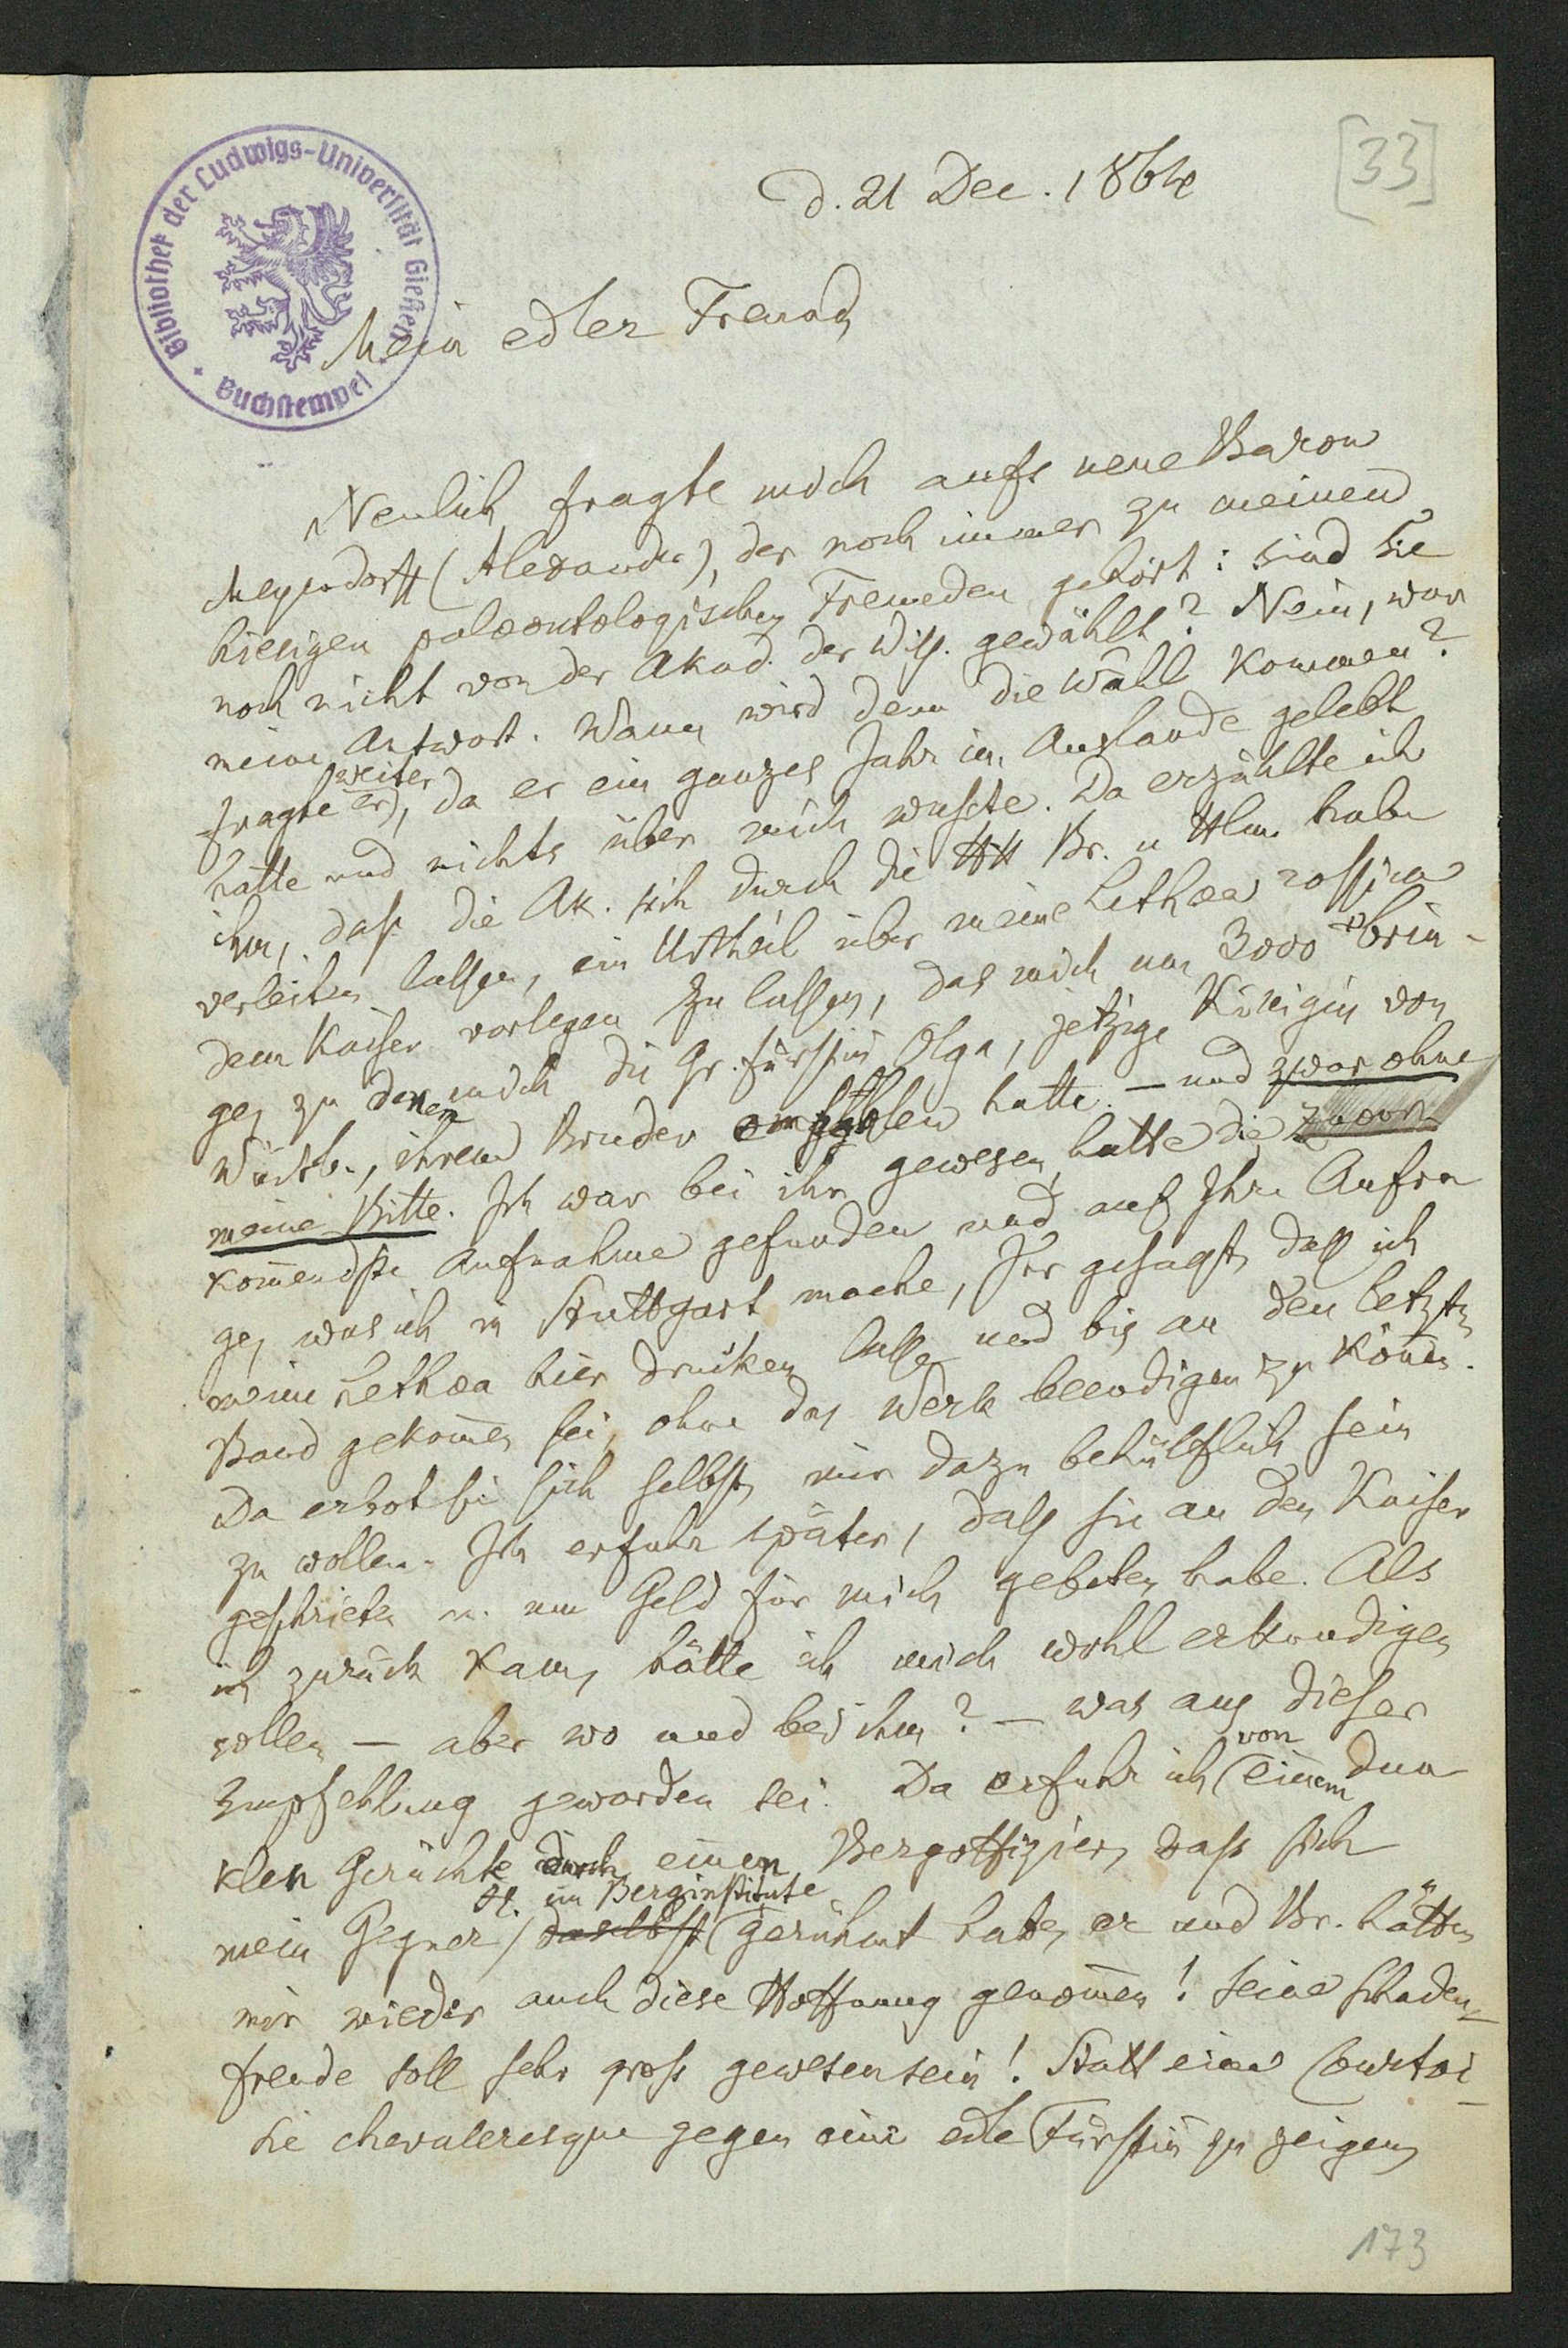 Bibliothek der Ludwigs-Universität Gießen
Buchstempel
[33]
d. 21 Dec. 1864
Mein edler Freund,
Neulich fragte mich aufs neue Baron
Meyendorff (Alexander), der noch immer zu meinen
hiesigen palaeontologischen Freunden gehört: sind Sie
noch nicht von der Akad. der Wiss. gewählt? Nein, war
meine Antwort. Wann wird denn die Wahl kommen?
fragte er weiter, da er ein ganzes Jahr im Auslande gelebt
hatte und nichts über mich wusste. Da erzählte ich
ihm, dass die Ak. sich durch die HH Br. u Hlm. habe
verleiten lassen, ein Urtheil über meine Lethaea rossica
dem Kaiser vorlegen zu lassen, das mich um 3000 brin-
gen zu denen mich die Gr. fürstin Olga, jetzige Königin von
Würtb., ihrem Bruder empfohlen hatte. – und zwar ohne
meine Bitte. Ich war bei ihr gewesen, hatte die zuvor
kom̄endste Aufnahme gefunden und auf Ihre Anfra
ge, was ich in Stuttgart mache, Ihr gesagt, dass ich
meine Lethaea hier drucken lasse und bis an den letzten
Band gekom̄en sei, ohne das Werk beendigen zu kön̄en.
Da erbot sie sich selbst, mir dazu behülflich sein
zu wollen. Ich erfuhr später, dass sie an den Kaiser
geschrieben u. um Geld für mich gebeten habe. Als
ich zurück kam, hätte ich mich wohl erkundigen
sollen – aber wo und bei ihm? – was aus dieser
Empfehlung geworden sei. Da erfuhr ich von einem dun
klen Gerüchte durch einen Bergoffizier, dass sich
mein Gegner H. im Berginstitute daselbst gerühmt habe, er und Br. hätten
mir wieder auch diese Hoffnung genom̄en! Seine Schaden-
freude soll sehr gross gewesen sein! Statt eine Courtoi-
sie chevaleresque gegen eine edle Fürstin zu zeigen,
173